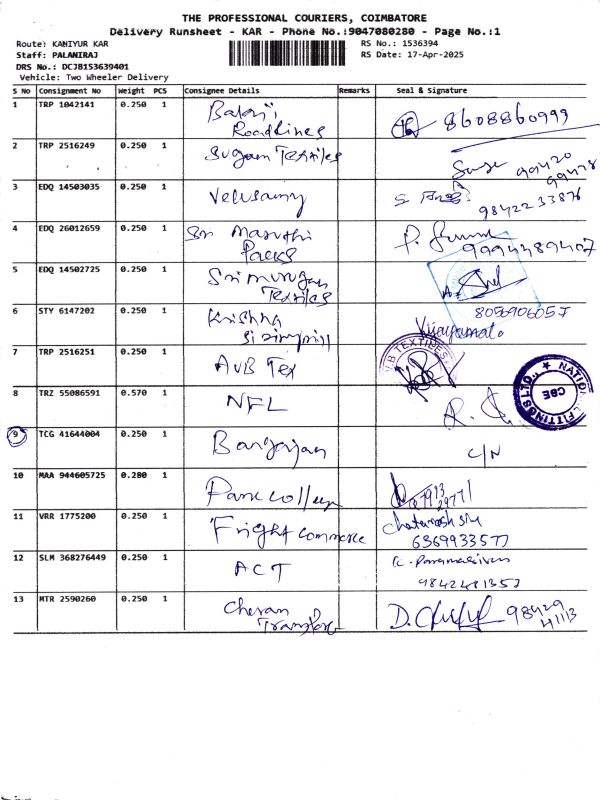 THE PROFESSIONAL COURIERS, COIMBATORE
Delivery Runsheet - KAR - Phone No.:9047080280 - Page No.:1
Route: KANIYUR KAR
RS No.: 1536394
Staff: PALANIRAJ
RS Date: 17-Apr-2025
DRS No.: DCJB153639401
Vehicle: Two Wheeler Delivery
S No Consignment No Weight PCS Consignee Details Remarks Seal & Signature
1 TRP 1042141 0.250 1 Balaji Roadlines 8608860999
2 TRP 2516249 0.250 1 Sugam Textiles
3 EDQ 14503035 0.250 1 Velusamy 9842233876
4 EDQ 26012659 0.250 1 Sri Maruthi Packs 9994489407
5 EDQ 14502725 0.250 1 Sri murugan Textiles
8056906057
6 STY 6147202 0.250 1 Krishna
7 TRP 2516251 0.250 1 AVB Tex
VB TEXTILES
8 TRZ 55086591 0.570 1 NFL
NATIONAL FITTINGS LTD., CBE
9 TCG 41644004 0.250 1 C/N
10 MAA 944605725 0.280 1 Park college
11 VRR 1775200 0.250 1 Fright commerce
6369933577
12 SLM 368276449 0.250 1 ACT
13 MTR 2590260 0.250 1 Cheran Transport 98429 41113